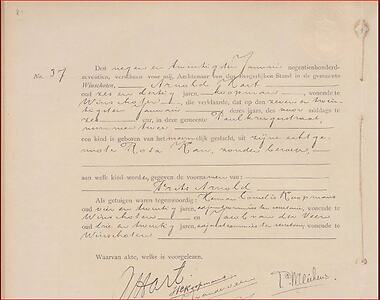 Den negen en twintigsten Januari negentienhonderd-
zeventien, verscheen voor mij, Ambtenaar van den Burgerlijken Stand in de gemeente
No. 37 Winschoten, Arnold Hart
oud zes en dertig jaren, koopman, wonende te
Winschoten, die verklaarde, dat op den zeven en twin-
tigsten Januari dezes jaars, des voor middags te
zes uur, in deze gemeente
nummer twee
een kind is geboren van het mannelijk geslacht, uit zijne echtge-
noote Rosa Kan, zonder beroep,
aan welk kind worden gegeven de voornamen van
Frits Arnold
Als getuigen waren tegenwoordig: Herman Cornelis Koopmans
oud vier en twintig jaren, wonende te
Winschoten en Jacob van der Veen
oud drie en twintig jaren, wonende te
Winschoten
Waarvan akte, welke is voorgelezen.
Hart
HCKoopmans